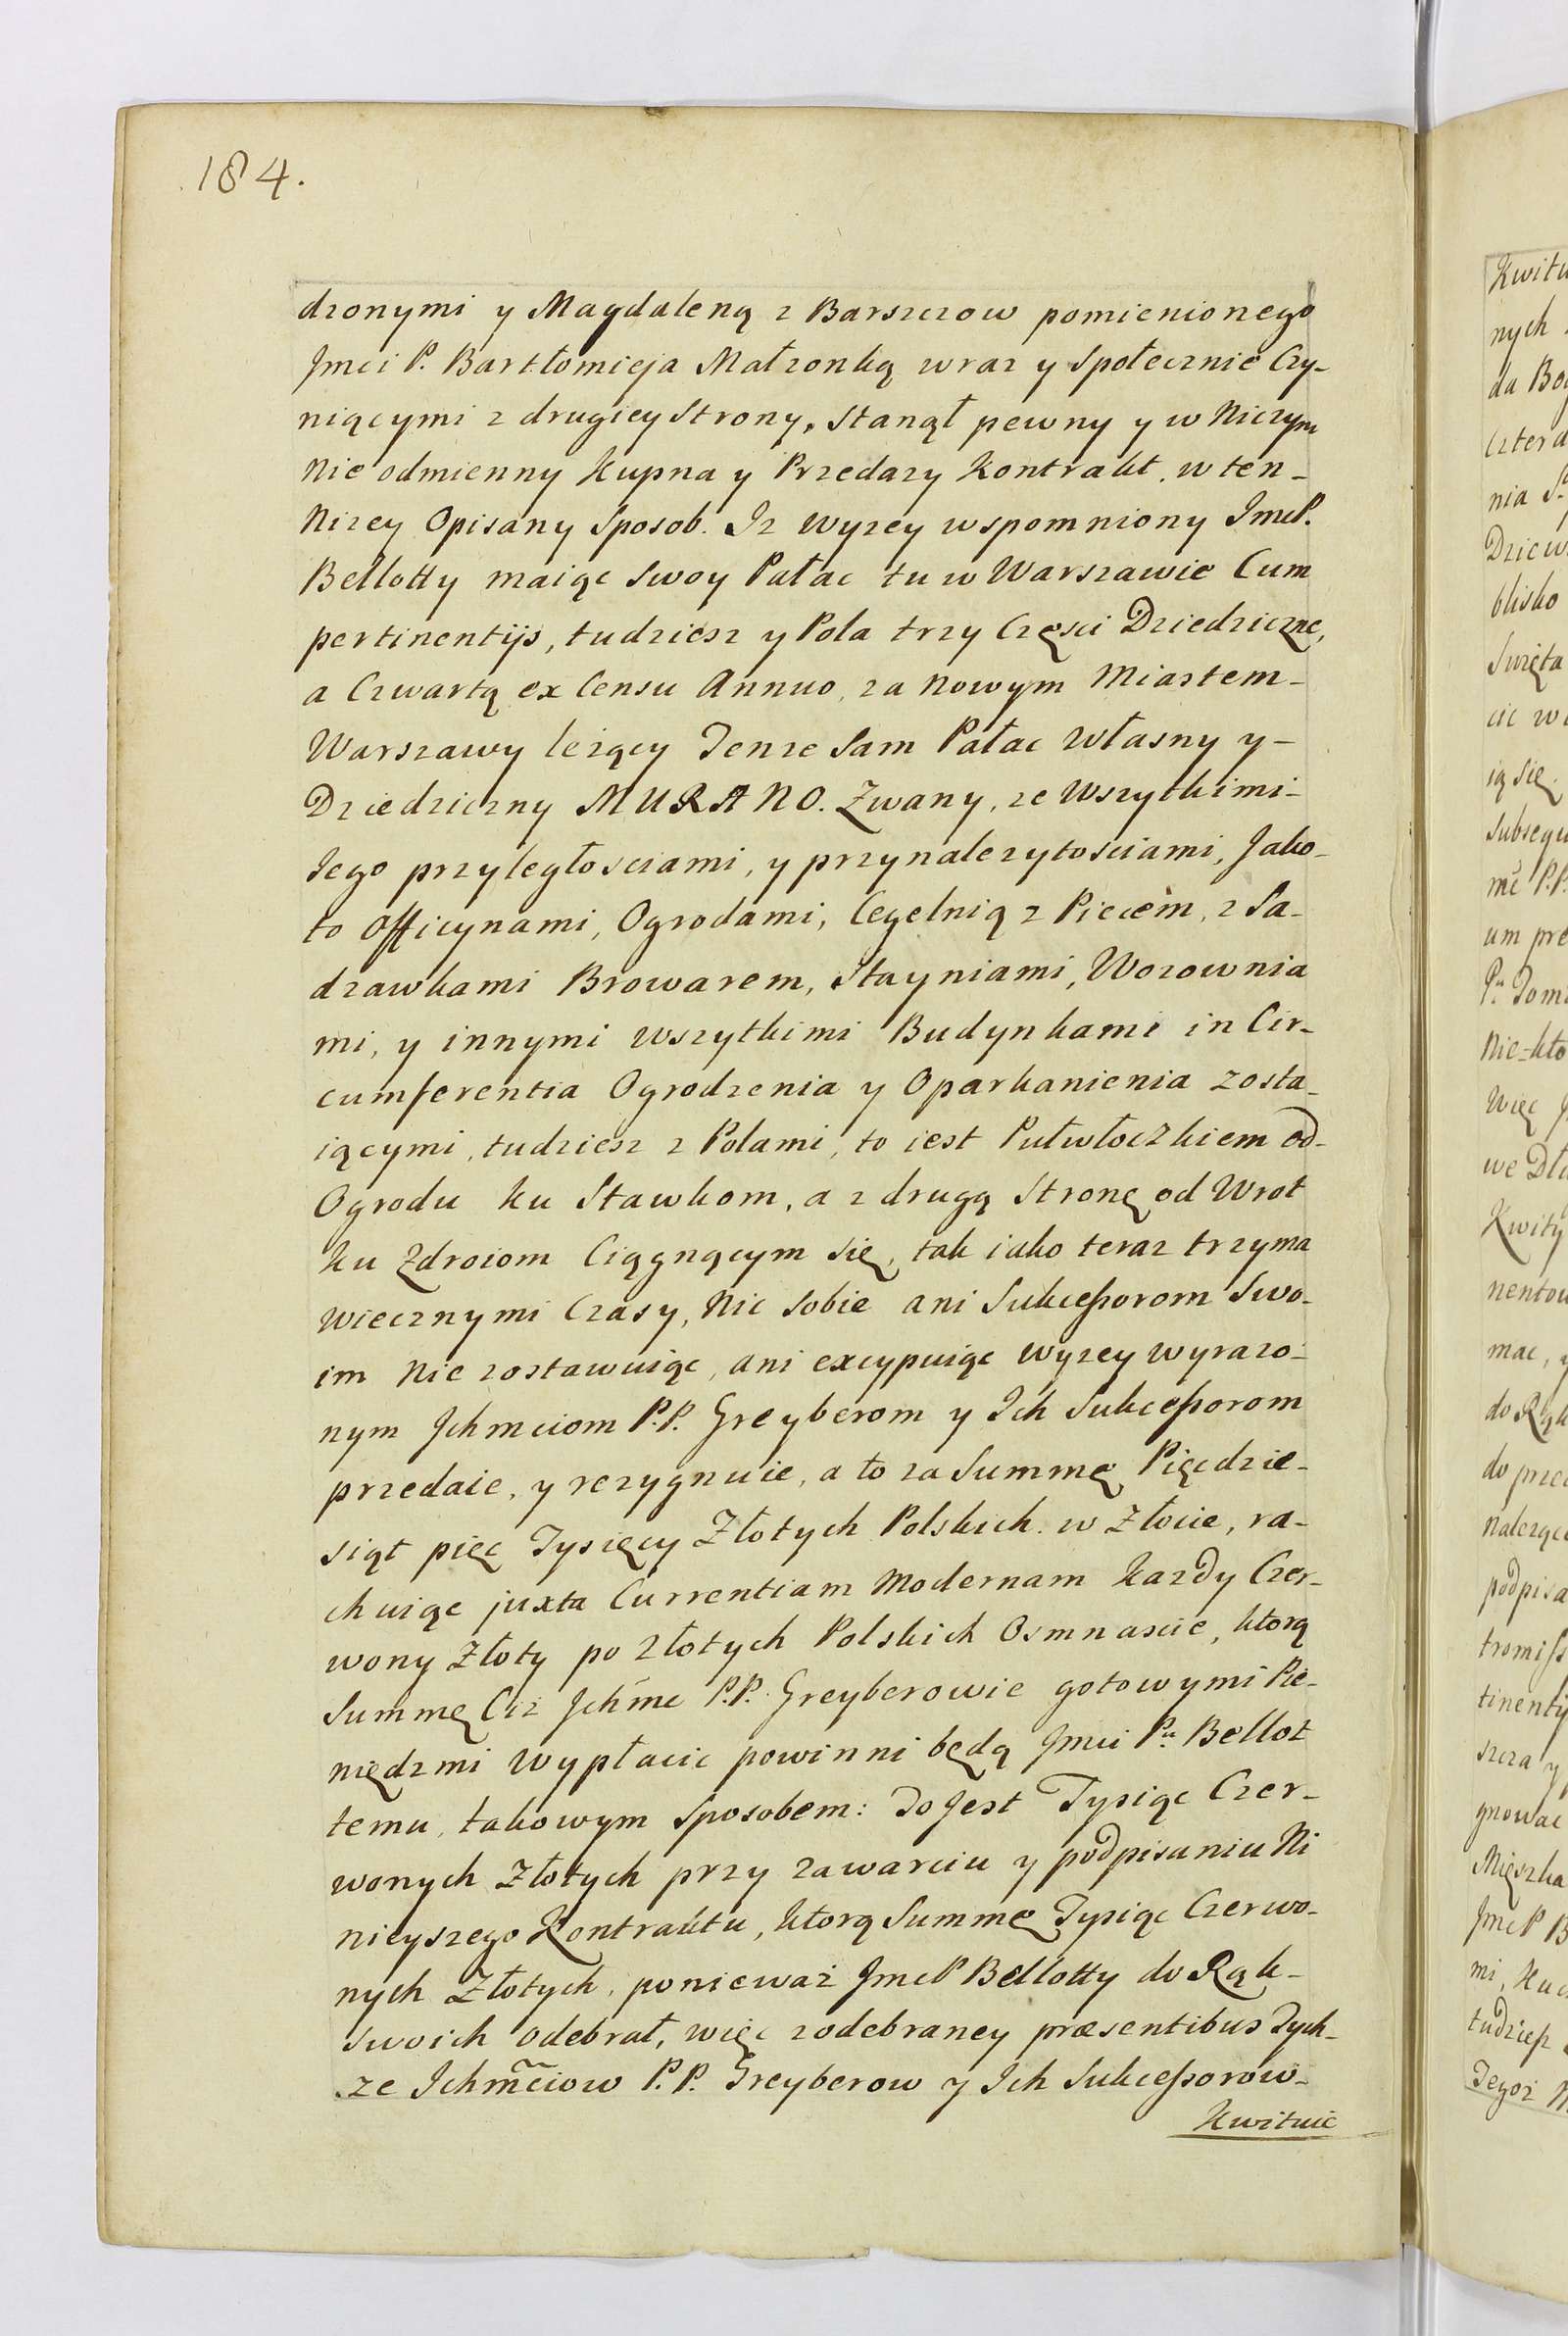 184.
dzonymi y Magdaleną z Barszczow pomienionego
Jmci P. Bartłomieja Małzonką wraz y społecznie Czy-
niącymi z drugiey strony, stanął pewny y w Niczym
Nie odmienny Kupna y Przedazy Kontrakt, w ten-
Nizey Opisany Sposob. Iz wyzey wspomniony JmcP.
Bellotty maiąc swoy Pałac tu w Warszawie Cum
pertinentijs, tudziesz y Pola trzy Częsci Dziedziczne,
a Czwartą ex Censu Annuo, za Nowym Miastem-
Warszawy leżący Tenze Sam Pałac Własny y-
Dziedziczny MURANO. Zwany, ze Wszytkimi-
Iego przyległosciami, y przynalezytościami, Jako-
to Officynami, Ogrodami, Cegelnią z Piecem, z Sa-
dzawkami Browarem, Stayniami, Wozownia
mi, y innymi wszytkimi Budynkami in Cir-
cumferentia Ogrodzenia y Oparkanienia zosta-
iącymi, tudziesz z Polami, to iest Pułwłoczkiem od-
Ogrodu ku Stawkom, a z drugą Stronę od Wrot
ku Zdroiom Ciągnącym się, tak iako teraz trzyma
wiecznymi Czasy, Nic sobie ani Sukceßorom Swo-
im Nie zostawuiąc, ani excypuiąc wyzey wyrazo-
nym Jchmciom P.P. Greyberom y Ich Sukceßorom
przedaie, y rezygnuie, a to za Summę Pięcdzie-
siąt pięc Tysięcy Złotych Polskich w Złocie, ra-
chuiąc juxta Currentiam Modernam kazdy Czer-
wony Złoty po Złotych Polskich Osmnascie, ktorą
Summę Ciz Jchmc P.P. Greyberowie gotowymi Pie-
niędzmi wypłacic powinni będą Jmci Pu Bellot
temu, takowym sposobem: To Jest Tysiąc Czer-
wonych Złotych przy zawarciu y podpisaniu Ni
nieyszego Kontraktu, ktorą Summę Tysiąc Czerwo-
nych Złotych, ponieważ JmcP Bellotty do Rąk-
swoich odebrał, więc zodebraney præsentibus Tych-
ze Ichmciow P.P. Greyberow y Ich Sukceßorow-
Kwituie
Kwitu
nych
da Bo
czterd
nia
Dziew
blisko
Swięta
cie w
ią się
Subsequ
mc P.P.
um pre
Pu Tom
Nie-kto
Więc
we Dł
Kwity
nentow
mac, y
do Rąk
do prze
Naleząc
podpisa
tromiß
tinentij
szcza y
gnowac
Mięszka
JmcP B
mi, Kuc
tudzieß
Tegoż